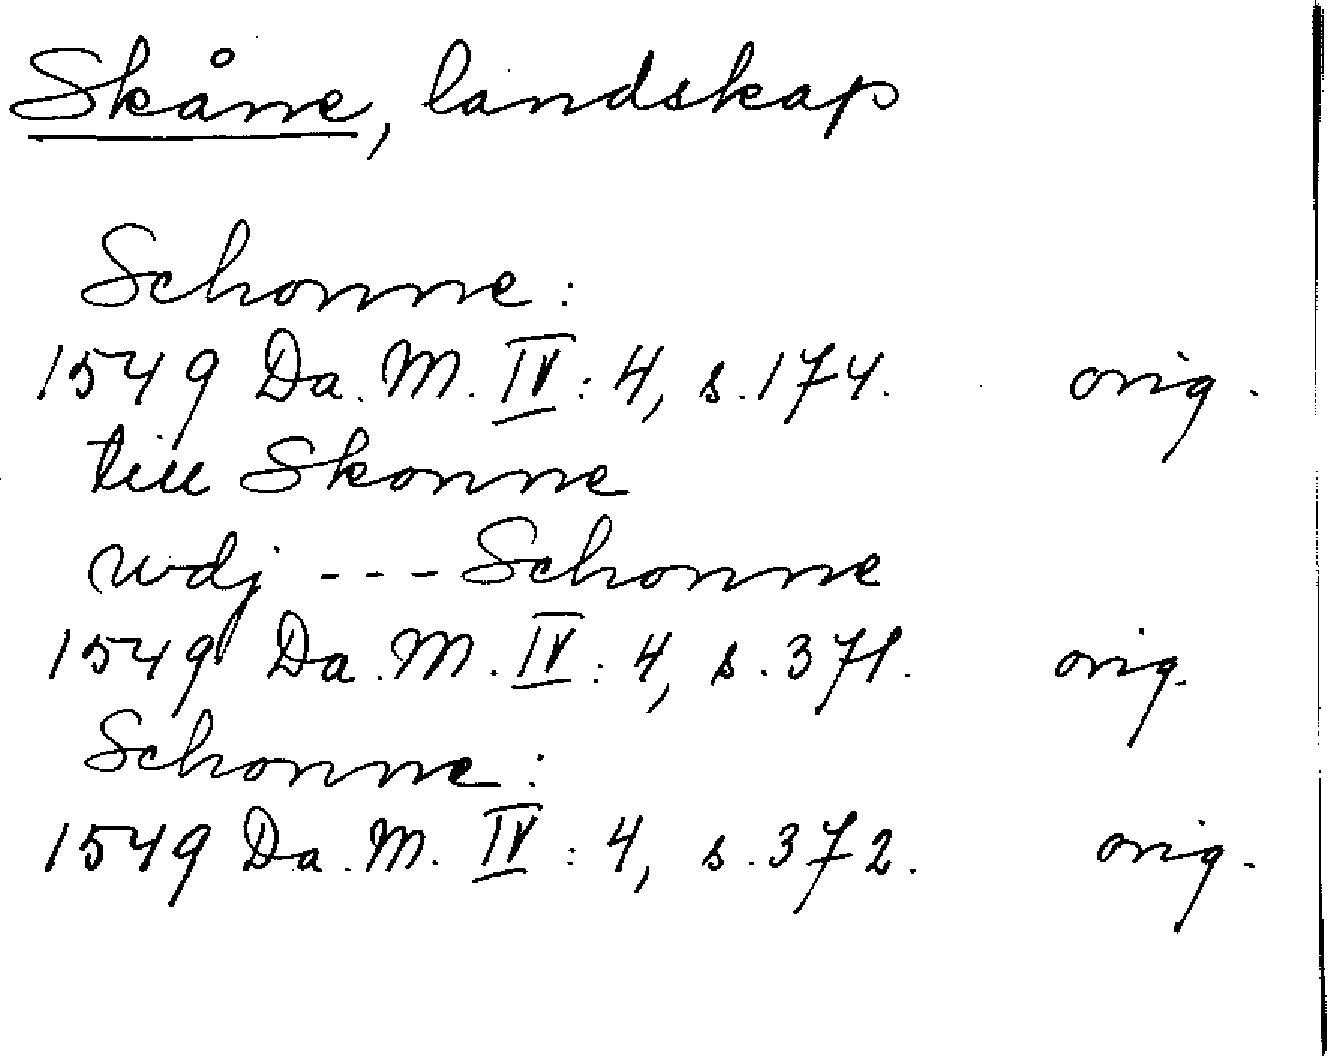 Skåne, landskap
Schonne:
1549 Da. M. IV: 4, s. 174. orig.
till Skonne
wdj --- Schonne
1549 Da. M. IV: 4, s. 371. orig.
Schonne:
1549 Da. M. IV: 4, s. 372. orig.